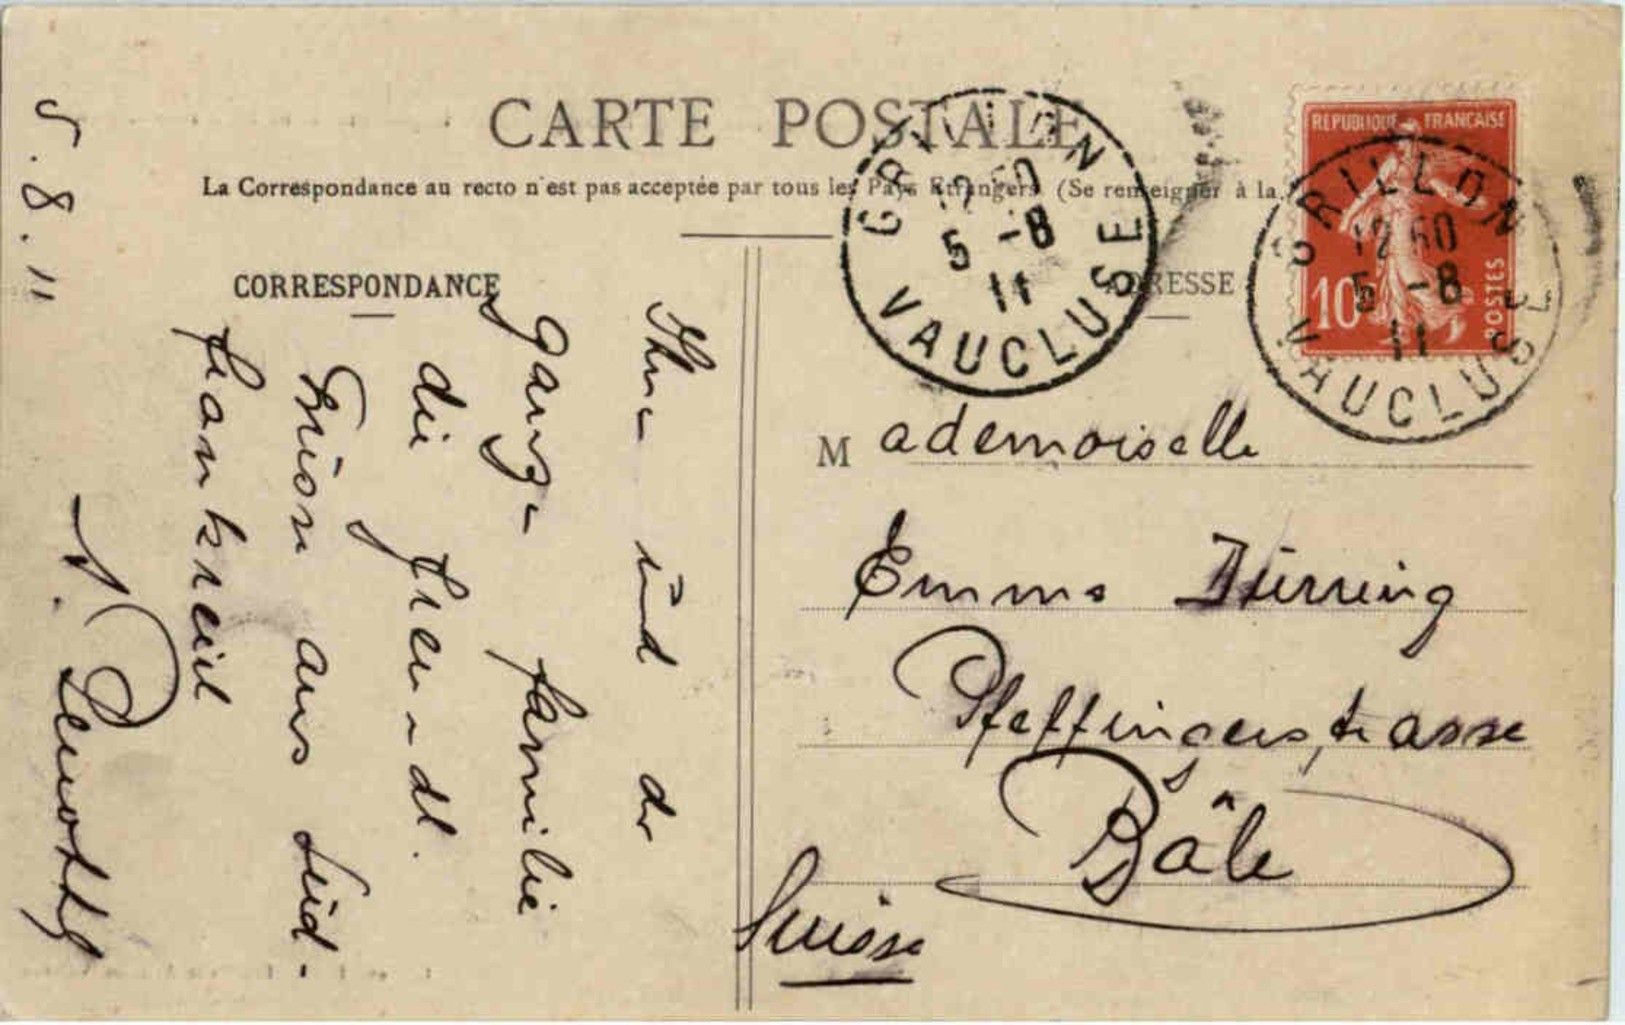 CARTE POSTALE
La Correspondance au recto n'est pas acceptée par tous les Pays Etrangers (Se renseigner à la
CORRESPONDANCE
ADRESSE
REPUBLIQUE FRANÇAISE
10
POSTES
GRILLON
12 50
5 -8
11
VAUCLUSE
GRILLON
12 50
5 -8
11
VAUCLUSE
5.8.11
Ihnen und der
ganzen Familie
die freundl.
Grüsse aus Süd-
frankreich
Mademoiselle
Emma Dürring
Pfeffingerstrasse
Bâle
Suisse